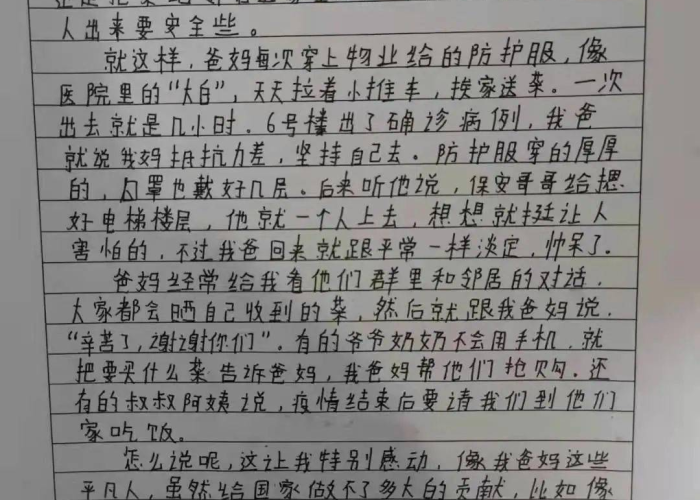 人出来要安全些。
就这样，爸妈每次穿上物业给的防护服，像
医院里的“大白”，天天拉着小推车，挨家送菜。一次
出去就是几小时。6号楼出了确诊病例，我爸
就说我妈抵抗力差，坚持自己去。防护服穿的厚厚
的，口罩也戴好几层。后来听他说，保安哥哥给摁
好电梯楼层，他就一个人上去，想想就挺让人
害怕的，不过我爸回来就跟平常一样淡定，帅呆了。
爸妈经常给我看他们群里和邻居的对话，
大家都会晒自己收到的菜，然后就跟我爸妈说，
“辛苦了，谢谢你们”。有的爷爷奶奶不会用手机，就
把要买什么菜告诉爸妈，我爸妈帮他们抢购。还
有的叔叔阿姨说，疫情结束后要请我们到他们
家吃饭。
怎么说呢，这让我特别感动，像我爸妈这些
平凡人，虽然给国家做不了多大的贡献，比如像